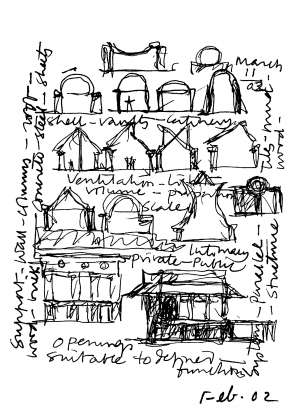 March
11
02
shell - vaults - catenary
Ventilation - light
volume - proportion
scale
Intimacy
Private - Public
Openings
suitable to defined
function
Feb. 02
Support - wall - column - roof -
wood - brick - concrete - steel - sheet
tile - mud -
wood -
system - Parallel -
Structure